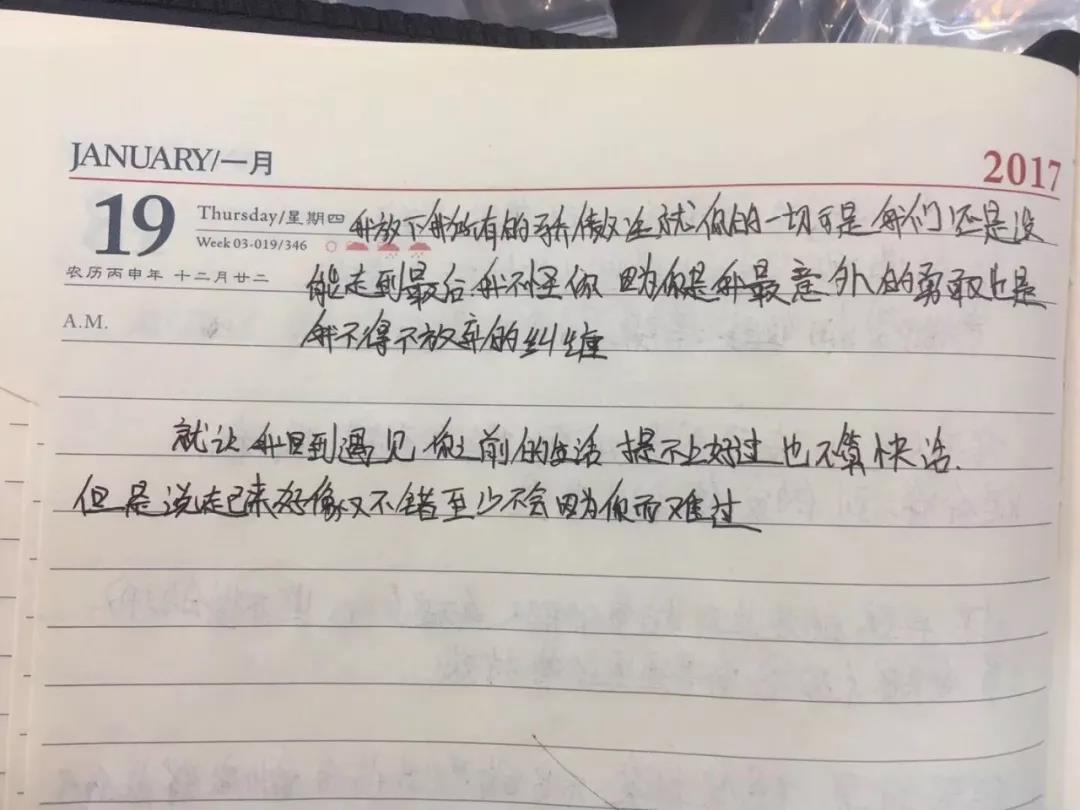 JANUARY/一月
2017
19
Thursday/星期四
Week 03-019/346
农历丙申年 十二月廿二
A.M.
我放下我所有的骄傲迁就你的一切可是我们还是没
能走到最后我不怪你 因为你是我最意外的勇敢也是
我不得不放弃的纠缠
就让我回到遇见你之前的生活 提不上好过也不算快活.
但是说起来好像又不错至少不会因为你而难过